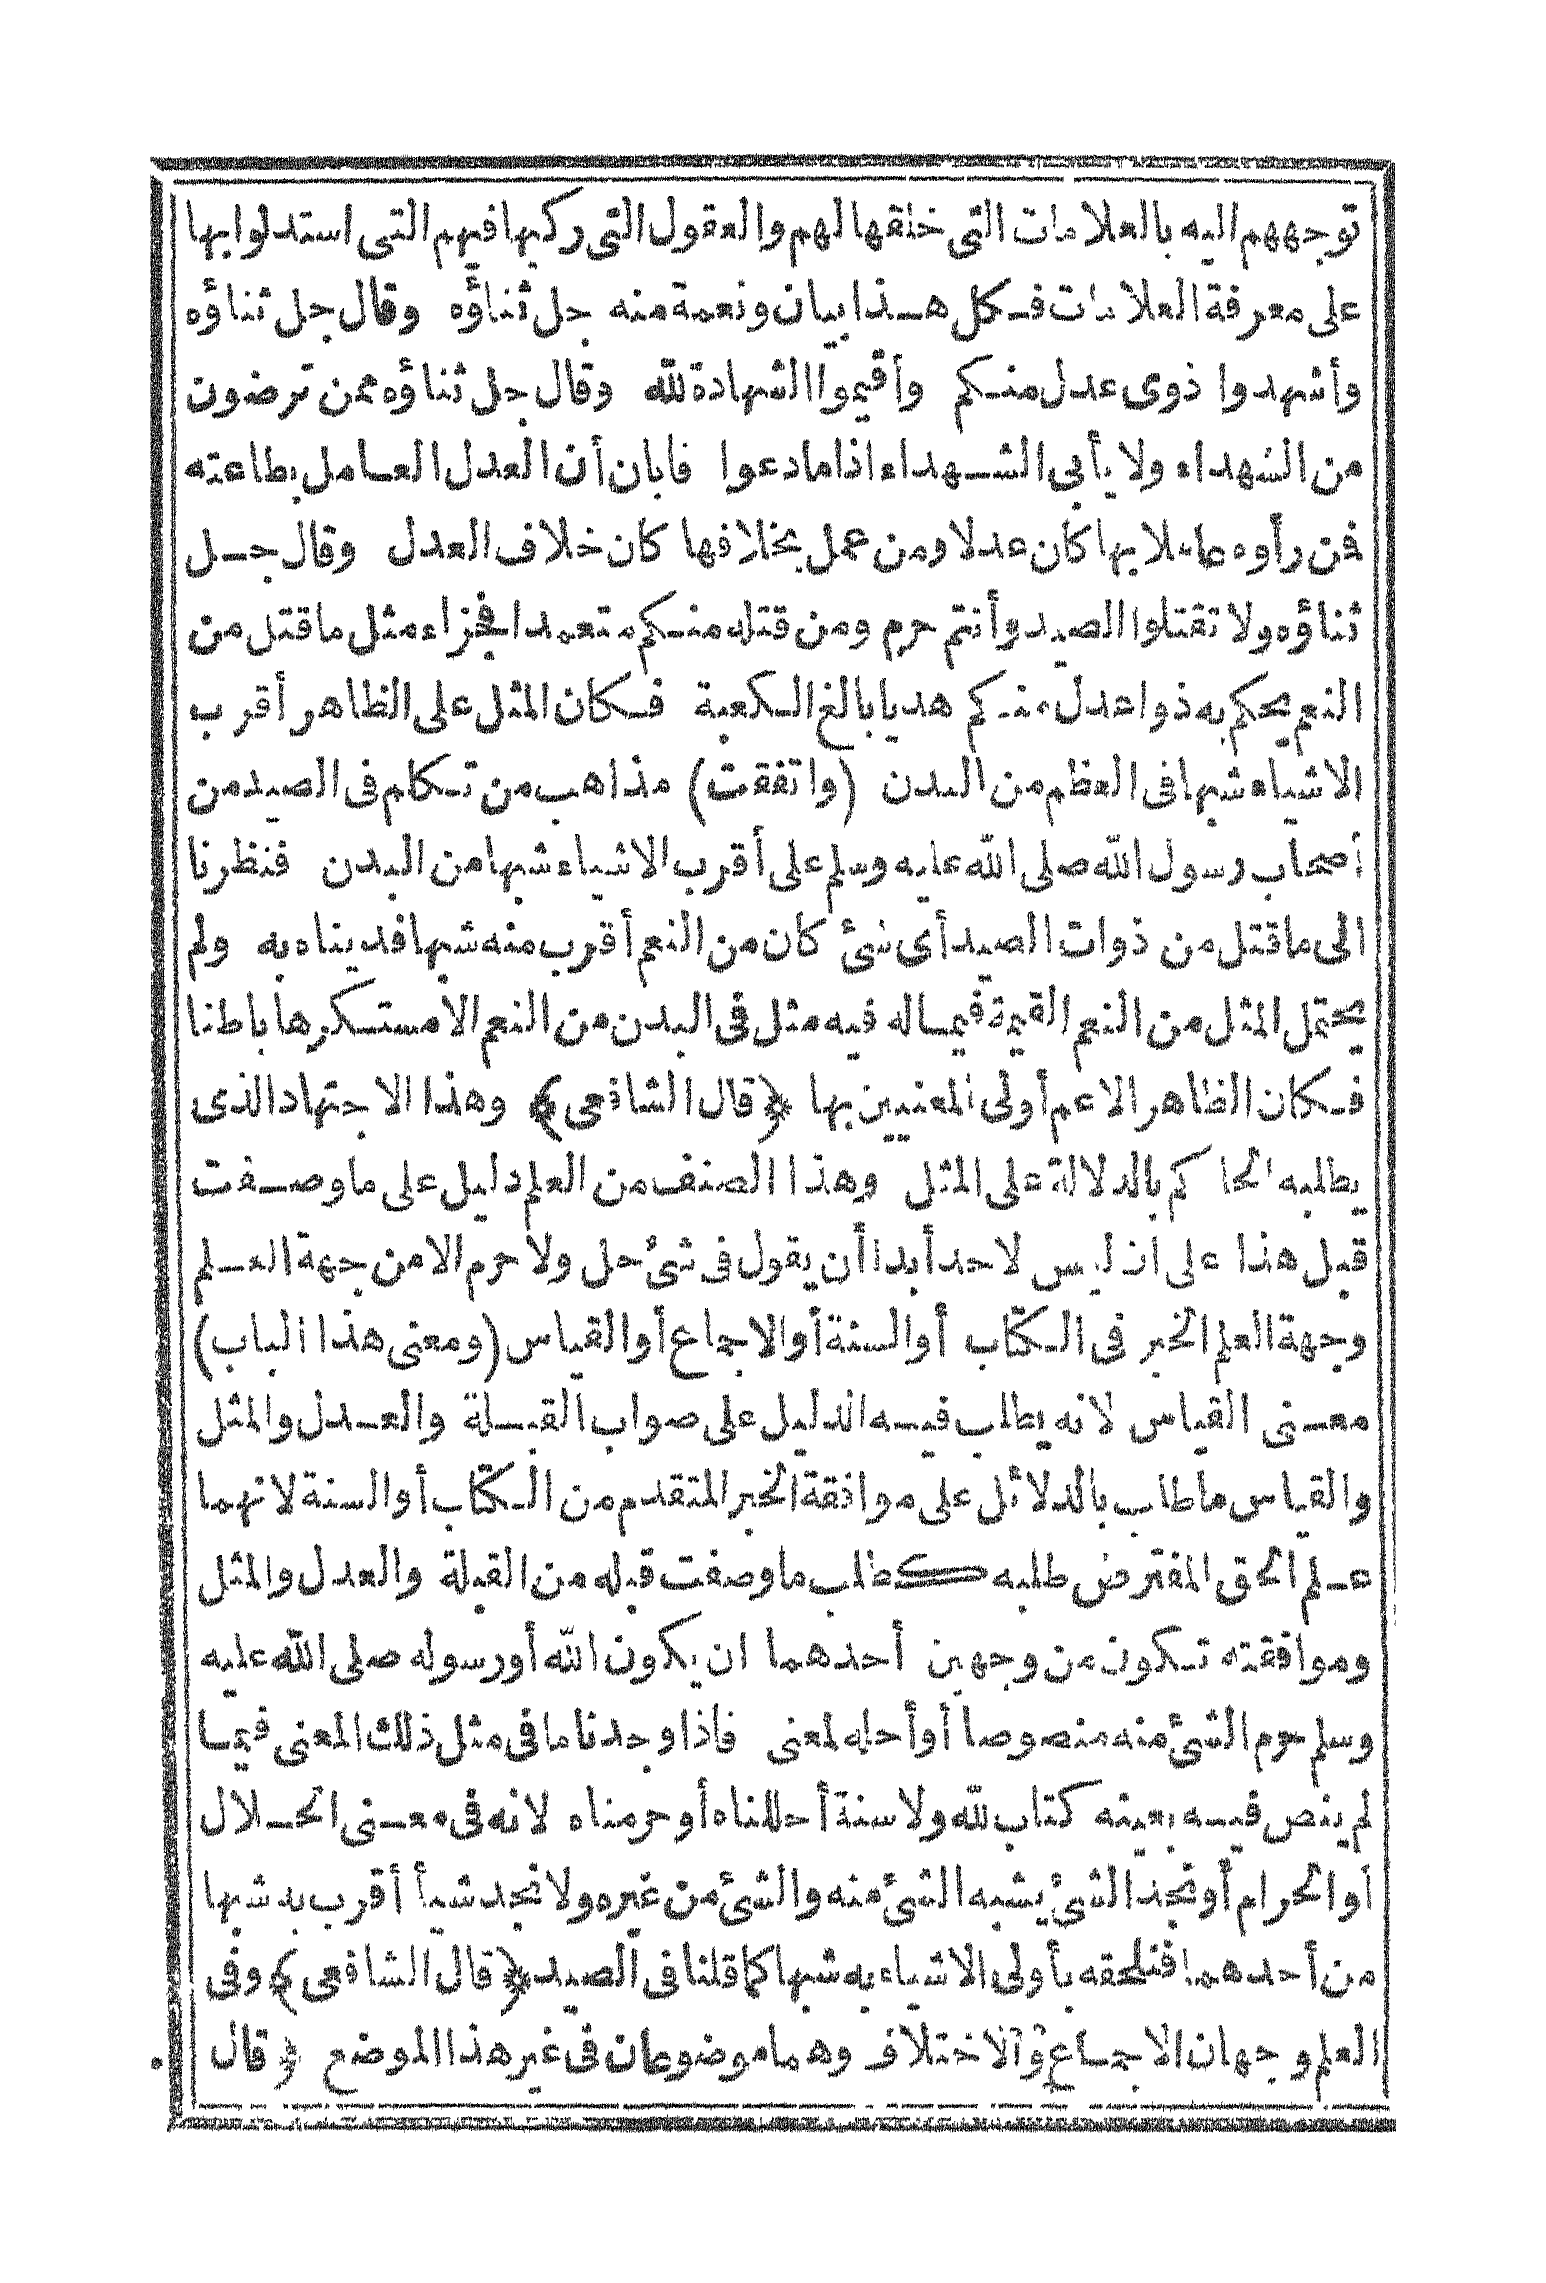 توجههم اليه بالعلامات التى خلقها لهم والعقول التى ركبها فيهم التى استدلوا بها
على معرفة العلامات فكل هذا بيان ونعمة منه جل ثناؤه وقال جل ثناؤه
وأشهدوا ذوى عدل منكم وأقيموا الشهادة لله وقال جل ثناؤه ممن ترضون
من الشهداء ولا يأبى الشهداء اذا ما دعوا فابان أن العدل العامل بطاعته
فمن رأوه عاملا بها كان عدلا ومن عمل بخلافها كان خلاف العدل وقال جل
ثناؤه ولا تقتلوا الصيد وأنتم حرم ومن قتله منكم متعمدا فجزاء مثل ما قتل من
النعم يحكم به ذوا عدل منكم هديا بالغ الكعبة فكان المثل على الظاهر أقرب
الاشياء شبها فى العظم من البدن (واتفقت) مذاهب من تكلم فى الصيد من
أصحاب رسول الله صلى الله عليه وسلم على أقرب الاشياء شبها من البدن فنظرنا
الى ما قتل من ذوات الصيد أى شئ كان من النعم أقرب منه شبها فديناه به ولم
يحتمل المثل من النعم القيمة فيما له فيه مثل فى البدن من النعم الا مستكرها باطنا
فكان الظاهر الاعم أولى المعنيين بها ﴿قال الشافعى﴾ وهذا الاجتهاد الذى
يطلبه الحاكم بالدلالة على المثل وهذا الصنف من العلم دليل على ما وصفت
قبل هذا على أن ليس لاحد أبدا أن يقول فى شئ حل ولا حرم الا من جهة العلم
وجهة العلم الخبر فى الكتاب أو السنة أو الاجماع أو القياس (ومعنى هذا الباب)
معنى القياس لانه يطلب فيه الدليل على صواب القبلة والعدل والمثل
والقياس ما طلب بالدلائل على موافقة الخبر المتقدم من الكتاب أو السنة لانهما
علم الحق المفترض طلبه كطلب ما وصفت قبله من القبلة والعدل والمثل
وموافقته تكون من وجهين أحدهما ان يكون الله أو رسوله صلى الله عليه
وسلم حرم الشئ منه منصوصا أو أحله لمعنى فاذا وجدنا ما فى مثل ذلك المعنى فيما
لم ينص فيه بعينه كتاب لله ولا سنة أحللناه أو حرمناه لانه فى معنى الحلال
أو الحرام أو نجد الشئ يشبه الشئ منه والشئ من غيره ولا نجد شيأ أقرب به شبها
من أحدهما فنلحقه بأولى الاشياء به شبها كما قلنا فى الصيد ﴿قال الشافعى﴾ وفى
العلم وجهان الاجماع والاختلاف وهما موضوعان فى غير هذا الموضع ﴿قال